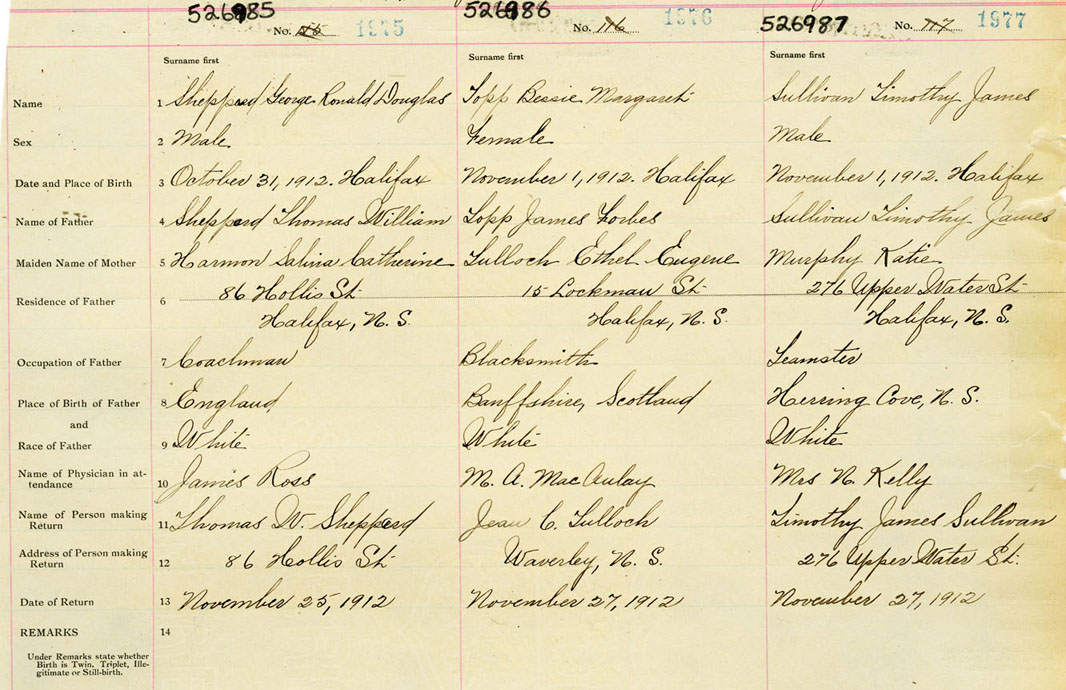 526985 526986 526987
No. 115 1975 No. 116 1976 No. 117 1977
Surname first Surname first Surname first
Name 1 Shepperd George Ronald Douglas Topp Bessie Margaret Sullivan Timothy James
Sex 2 Male Female Male
Date and Place of Birth 3 October 31, 1912. Halifax November 1, 1912. Halifax November 1, 1912. Halifax
Name of Father 4 Shepperd Thomas William Topp James Forbes Sullivan Timothy James
Maiden Name of Mother 5 Harmon Salina Catherine Tulloch Ethel Eugene Murphy Katie
Residence of Father 6 86 Hollis St 15 Lockman St 276 Upper Water St
Halifax, N. S. Halifax, N. S. Halifax, N. S.
Occupation of Father 7 Coachman Blacksmith Teamster
Place of Birth of Father 8 England Banffshire, Scotland Herring Cove, N. S.
and
Race of Father 9 White White White
Name of Physician in at-
tendance 10 James Ross M. A. MacAulay Mrs N. Kelly
Name of Person making
Return 11 Thomas W. Shepperd Jean C. Tulloch Timothy James Sullivan
Address of Person making
Return 12 86 Hollis St Waverley, N. S. 276 Upper Water St.
Date of Return 13 November 25, 1912 November 27, 1912 November 27, 1912
REMARKS 14
Under Remarks state whether
Birth is Twin, Triplet, Ille-
gitimate or Still-birth.